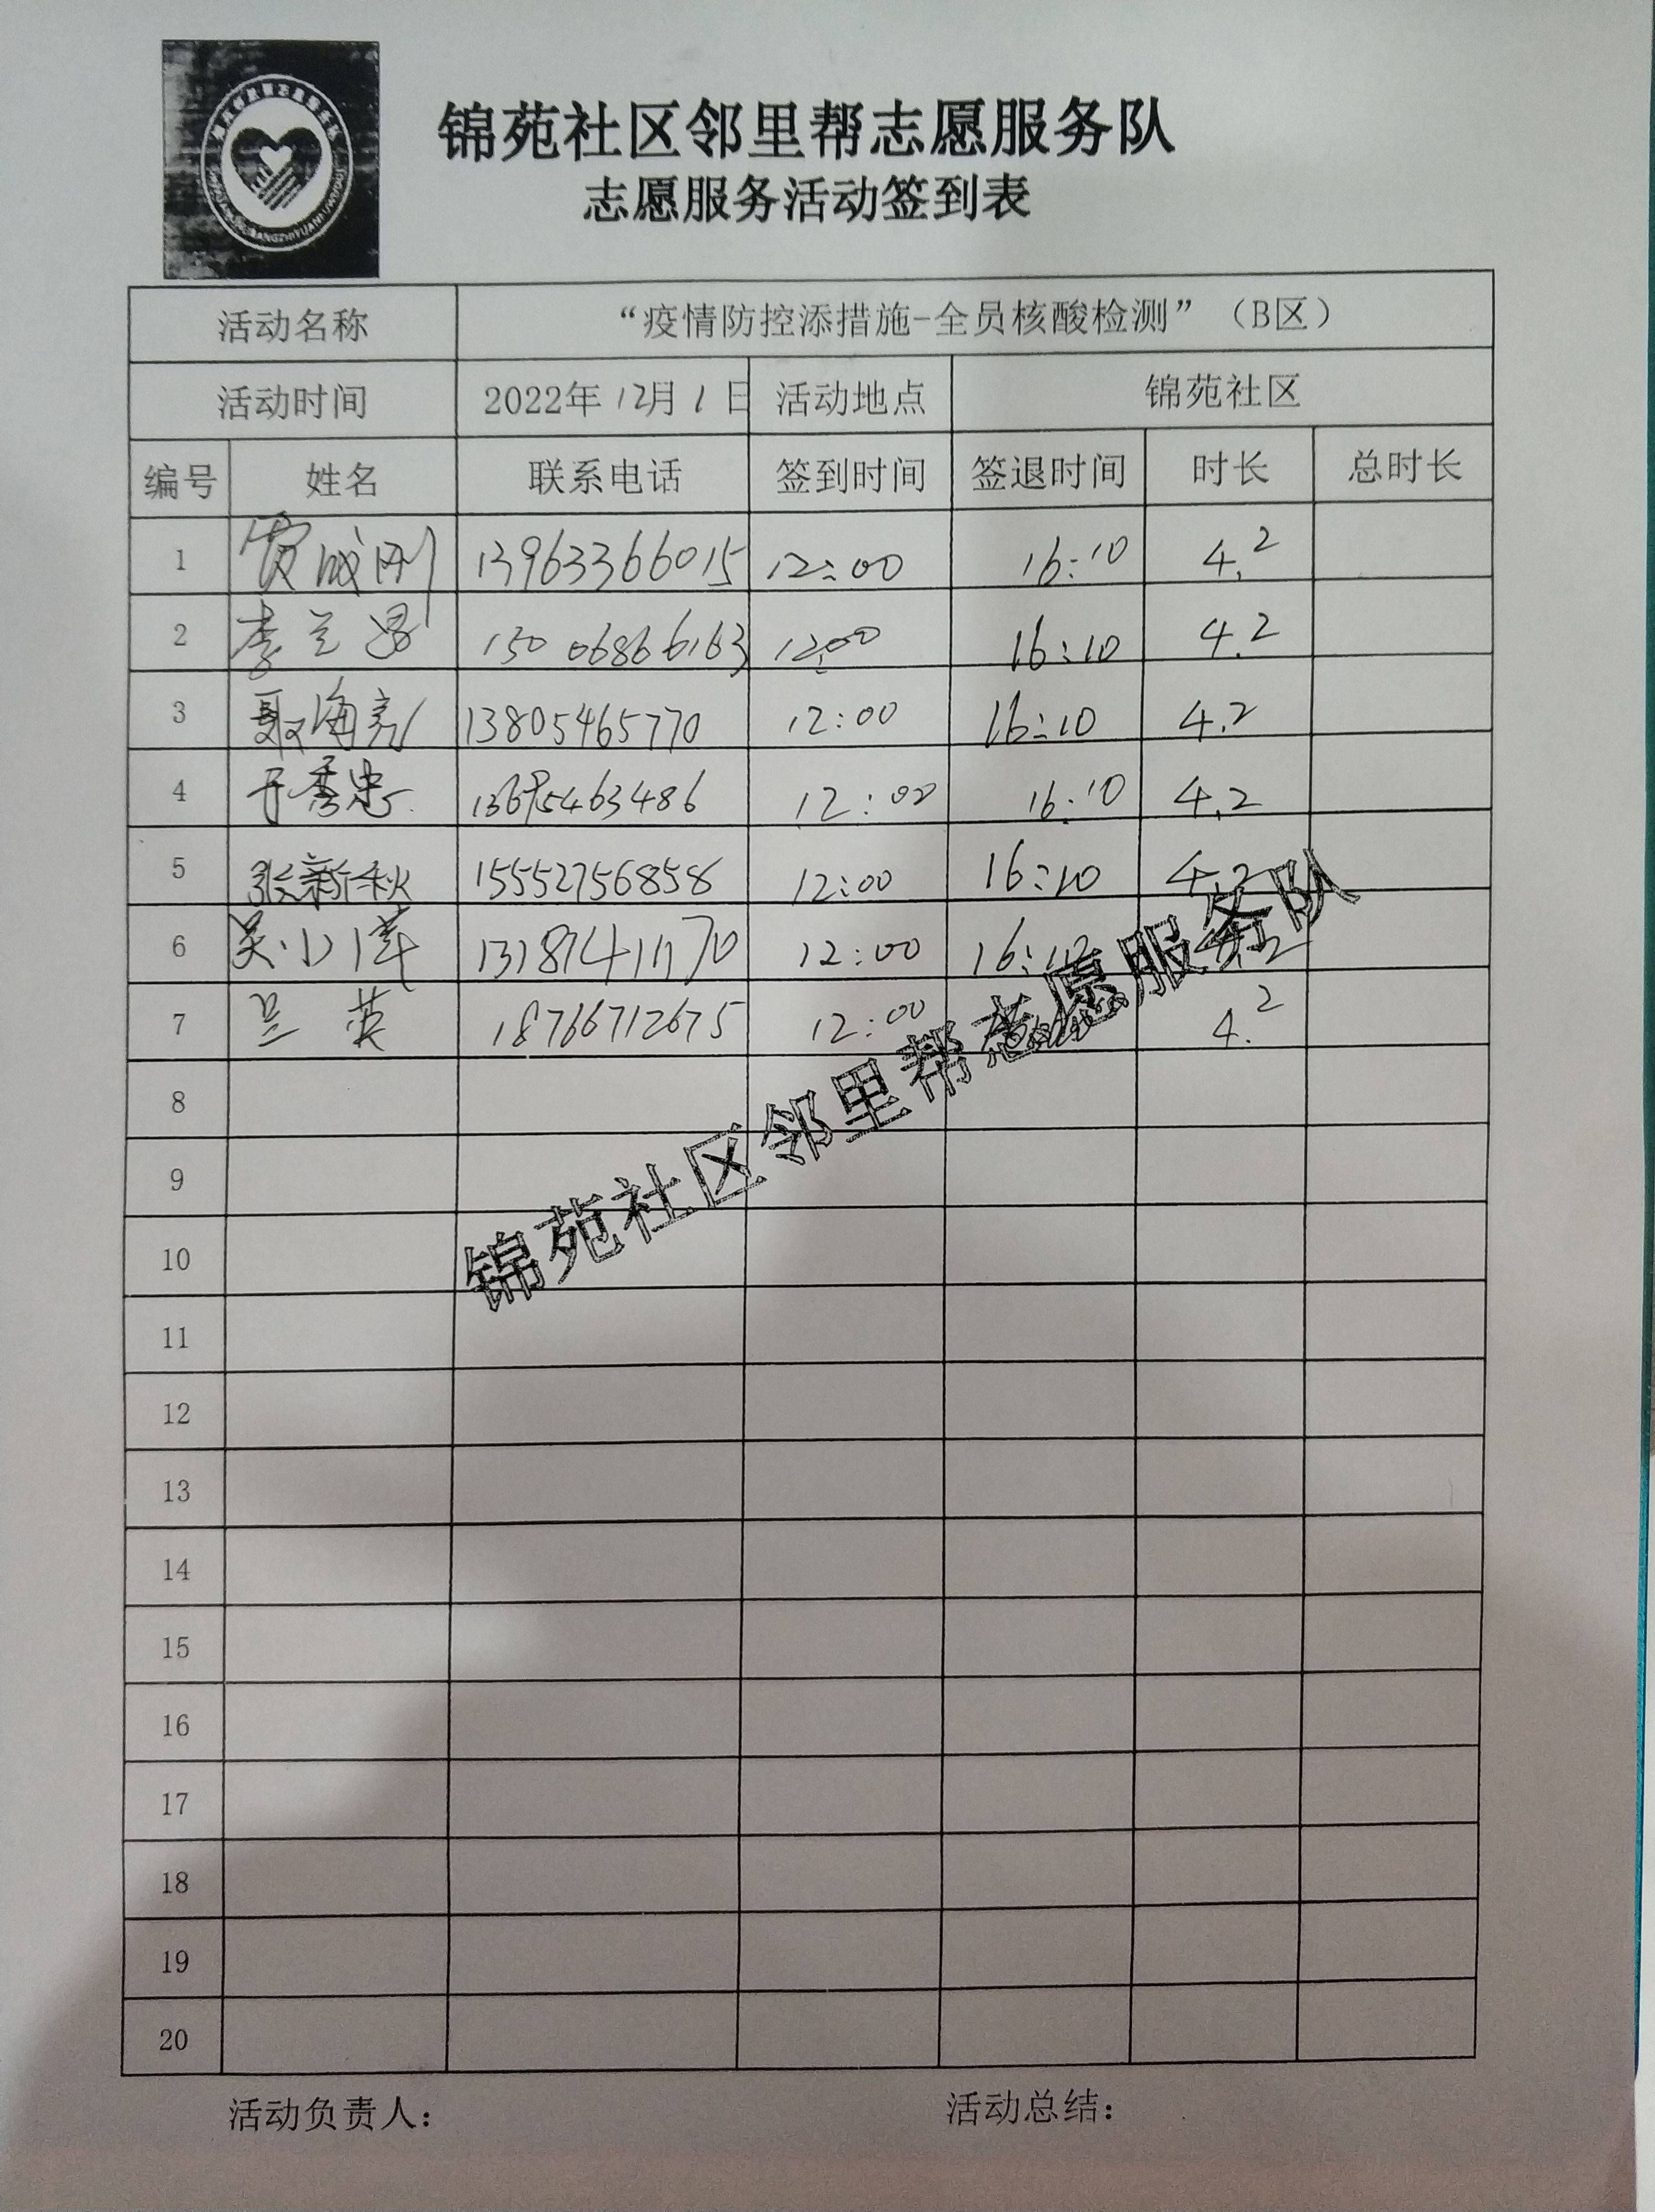 锦苑社区邻里帮志愿服务队
志愿服务活动签到表
活动名称 “疫情防控添措施-全员核酸检测”（B区）
活动时间 2022年12月1日 活动地点 锦苑社区
编号 姓名 联系电话 签到时间 签退时间 时长 总时长
1 成刚 13963366015 12:00 16:10 4.2
2 李兰昌 15006866163 12:00 16:10 4.2
3 聂海亮 13805465770 12:00 16:10 4.2
4 于秀忠 12:00 16:10 4.2
5 张新秋 155527568586 12:00 16:10 4.2
6 吴小 12:00 16:10 4.2
7 兰英 18766712675 12:00 4.2
8
9
10
11
12
13
14
15
16
17
18
19
20
锦苑社区邻里帮志愿服务队
活动负责人： 活动总结：